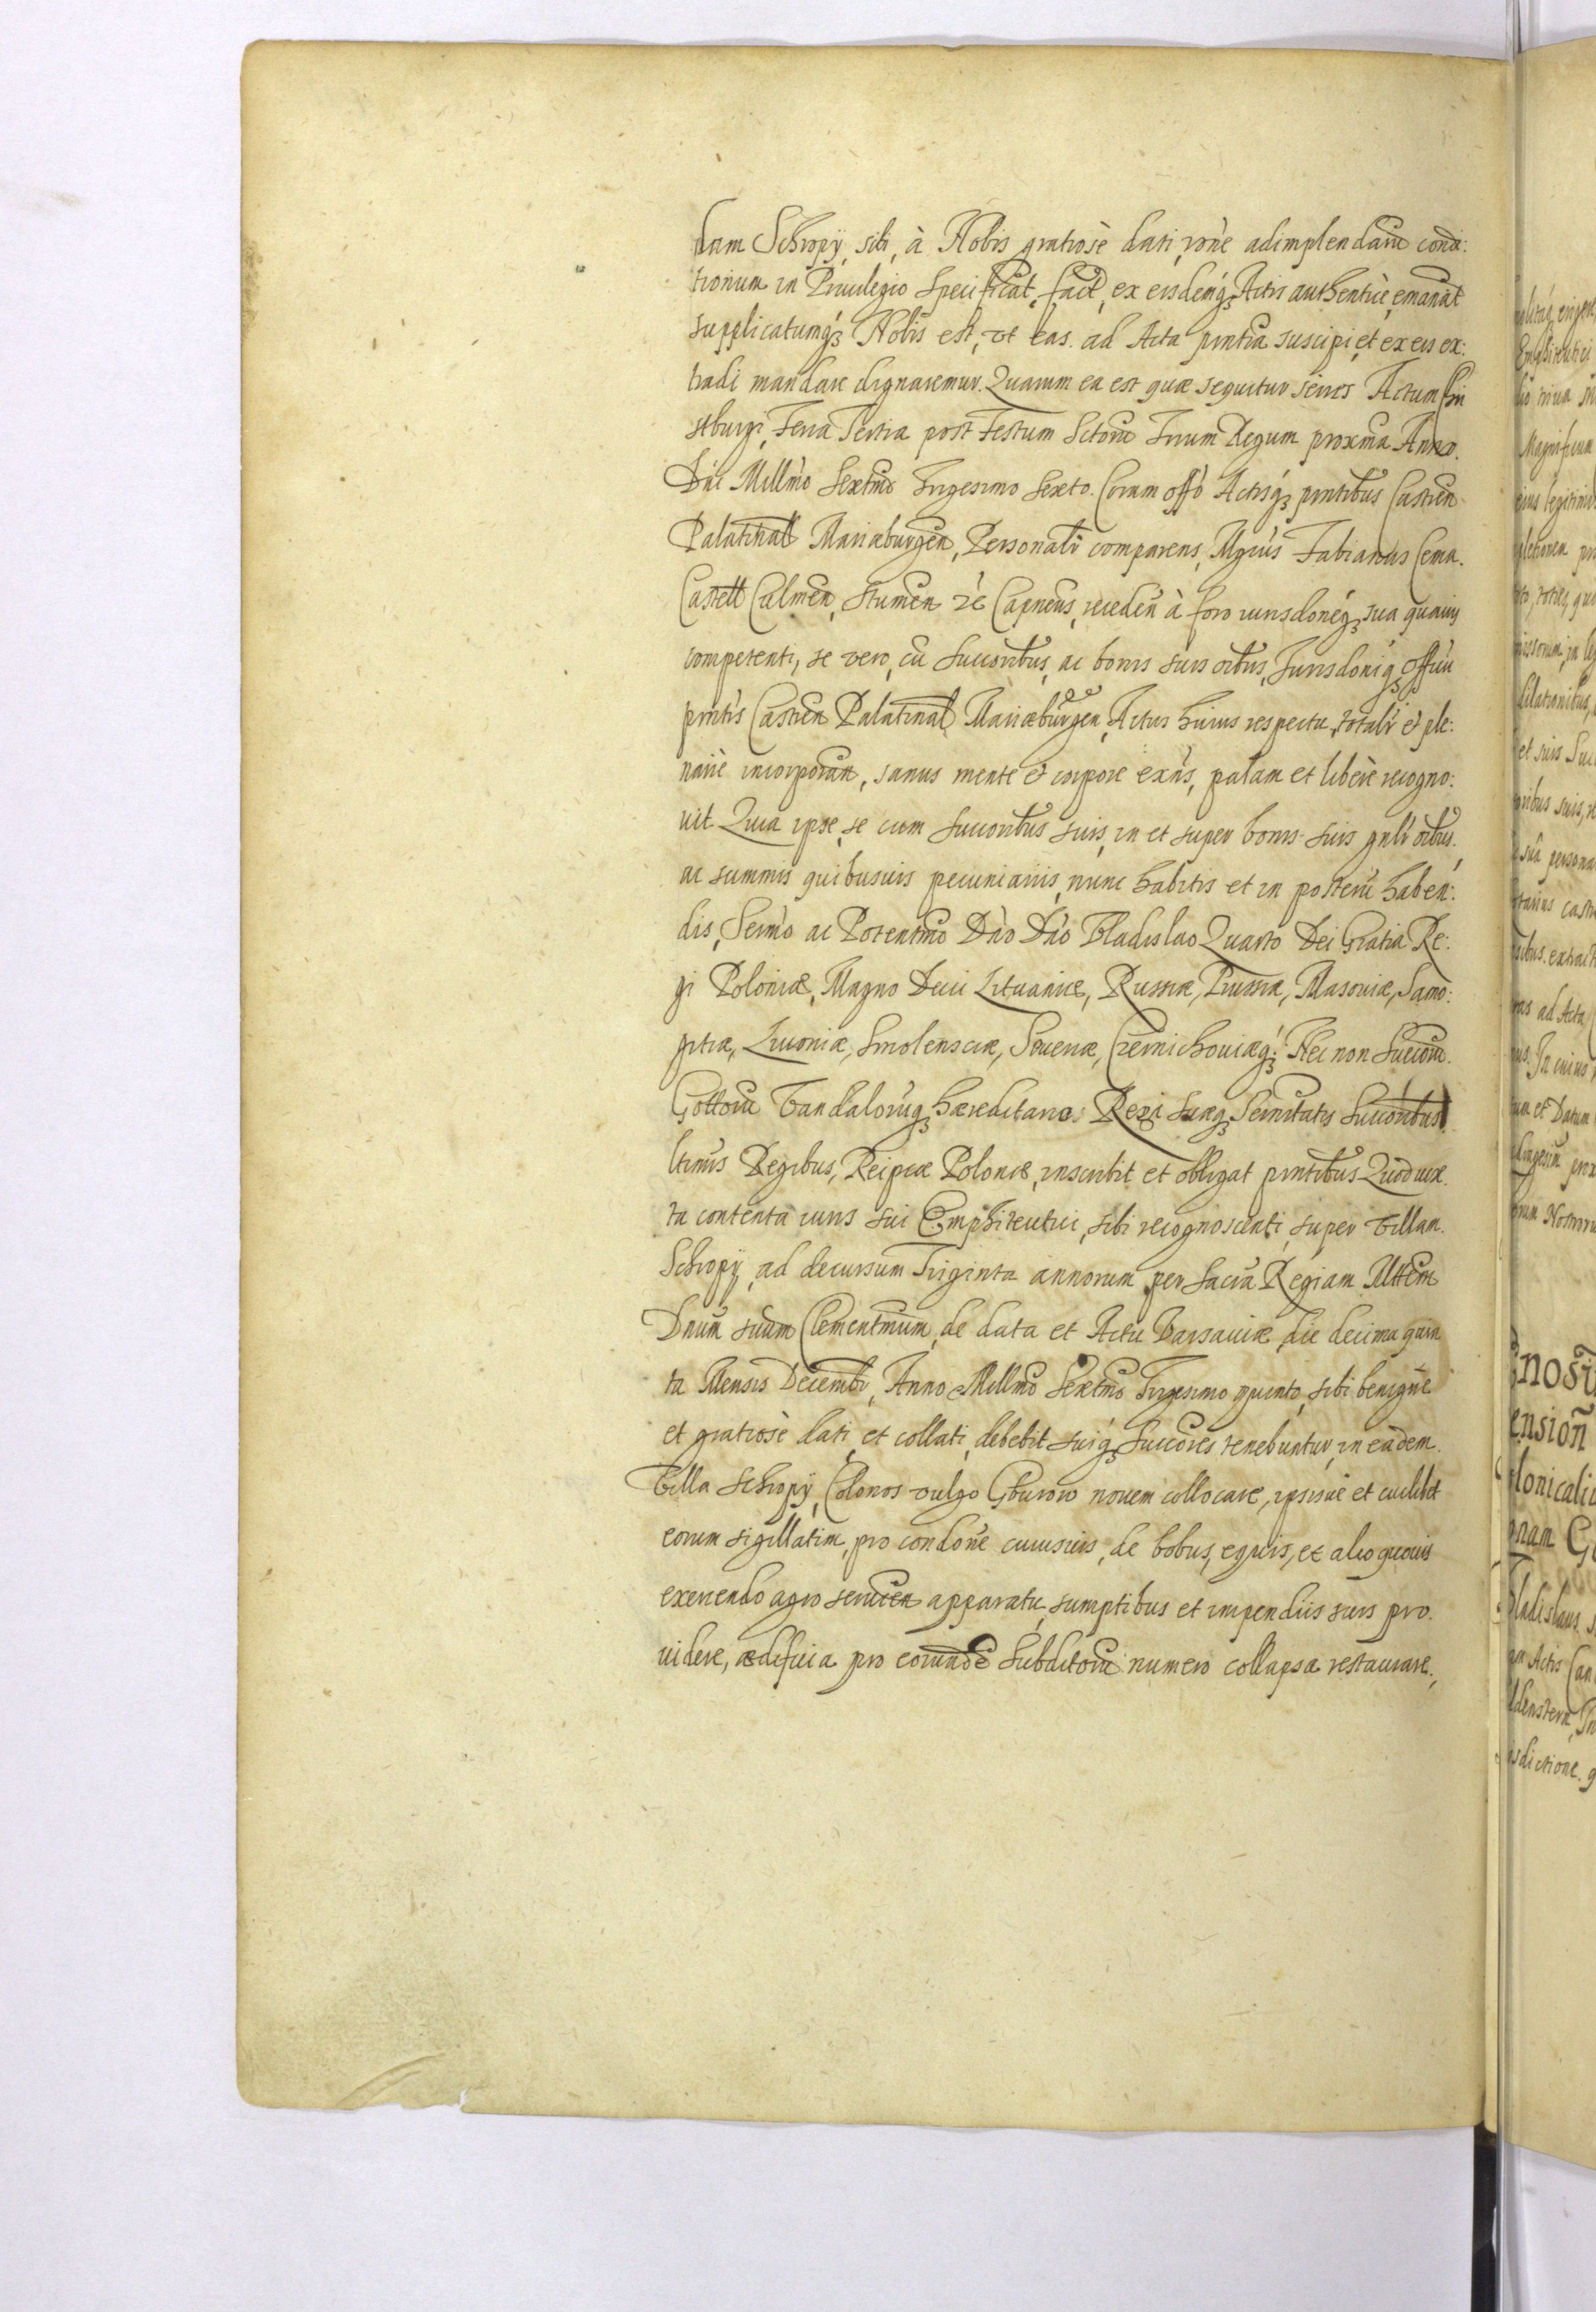 lam Schropÿ, sibi, à Nobis gratiosè dati, rõne adimplendarũ condi:
tionum in Priuilegio specificat, fact, ex eisdemq; Actis authenticè emanat
supplicatumq; Nobis est, vt eas ad Acta pñtia suscipi, et ex eis ex:
tradi mandare dignaremur. Quarum ea est quæ sequitur series Actum Chri
stburgi, Feria Tertia post Festum Sctorũ Trium Regum proxima Anno
Dñi Millmo Sextmo Trigesimo Sexto. Coram offo Actisq; pñtibus Castren
Palatinal Mariæburgen, Personalr comparens, Mgcus Fabianus Cema
Castell Calmen, Stumen zc Capneus, receden à foro iurisdoneq; sua quauis
competenti, se vero, cũ succoribus, ac bonis suis oibus, Jurisdoniq; officii
pntis Castren Palatinal Mariæburgen, Actus huius respectu, totalr et ple:
nariè incorporan, sanus mente et corpore exñs, palam et liberè recogno:
uit Quia ipse, se cum succoribus suis, in et super bonis suis gnlr oibus,
ac summis quibusuis pecuniariis, nunc habitis et in posterũ haben:
dis, Sermo ac Potentmo Dño Dño Vladislao Quarto Dei Gratia Re:
gi Poloniæ, Magno Duci Lituaniæ, Russiæ, Prussiæ, Masouiæ, Samo:
gitiæ, Liuoniæ, Smolensciæ, Seueriæ, Czernichouiæq; Nec non Suecorũ
Gottorũ Vandalorũq; hæreditario Regi suæq; Sernitatis Succoribus
ltimis Regibus, Reipcæ Poloniæ, inscribit et obligat pñtibus Quod iux
ta contenta iuris sui Emphiteutici, sibi recognoscenti, super Villam
Schropÿ, ad decursum Triginta annorum per Sacrã Regiam Mttem
Dnum suum Clementmum, de data et Actu Varsauiæ die decima quin
ta Mensis Decembr, Anno Millmo Sextmo Trigesimo quinto, sibi benignè
et gratiosè dati, et collati, debebit suiq; Succores tenebuntur, in eadem
Villa Schropÿ, Colonos vulgo Gburow nouem collocare, ipsisue et cuilibet
eorum sigillatim, pro condone cuiusuis, de bobus, equis, et alio quouis
exercendo agro seruien apparatu, sumptibus et impendiis suis pro
uidere, ædificia pro eorundẽ Subditorũ numero collapsa restaurare,